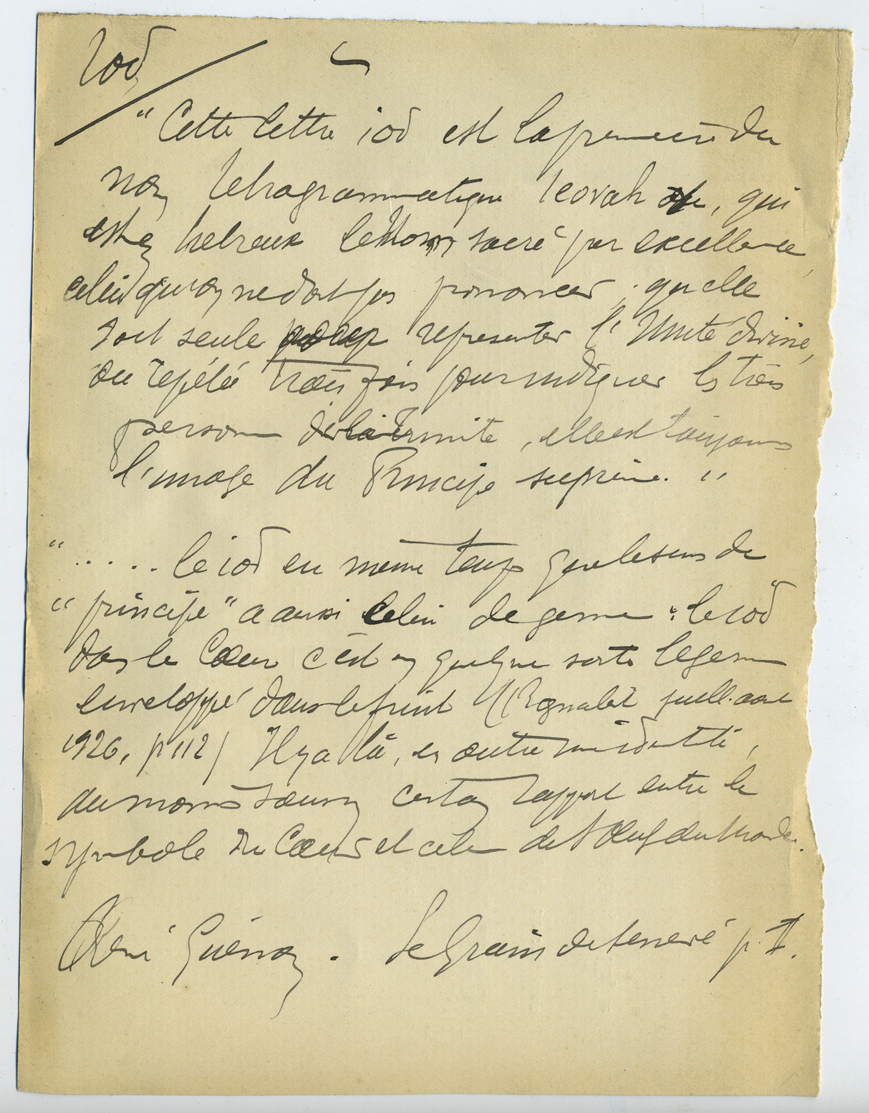 Iod
"Cette lettre iod est la première du
nom tetragrammatique Ieovah, qui
est en hebreux le Nom sacré par excellence,
celui qu'on ne doit pas prononcer ; qu'elle
soit seule pour representer l'Unité divine,
ou repétée trois fois pour indiquer les trois
personnes de la Trinité, elle est toujours
l'image du Principe suprême. "
" ..... le iod en même temps que le sens de
"principe" a aussi celui de germe : le iod
dans le Cœur c'est en quelque sorte le germe
enveloppé dans le fruit (Regnabit juill. aout
1926, p 112) Il y a là, en outre une identité,
du moins sous un certain rapport entre le
symbole du Cœur et celui de l'Œuf du Monde.
René Guénon. Le Grain de senevé p. II.